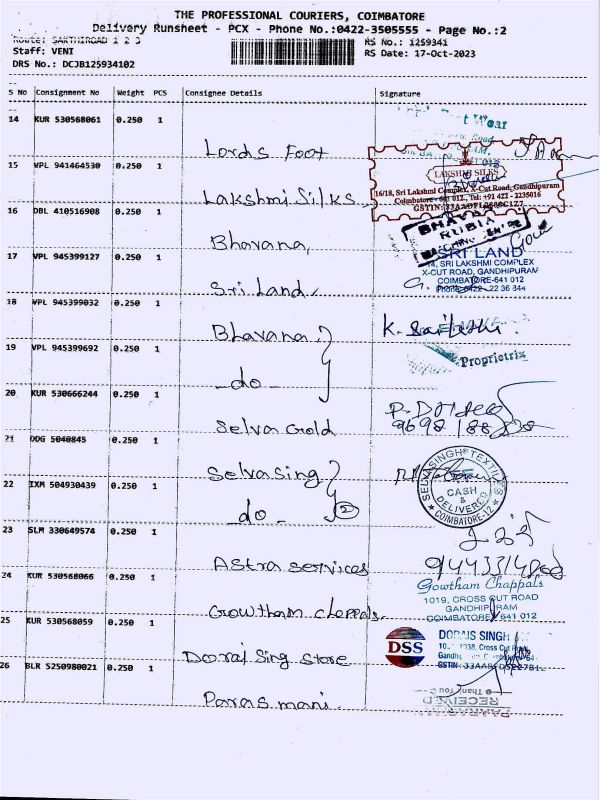 THE PROFESSIONAL COURIERS, COIMBATORE
Delivery Runsheet - PCX - Phone No.:0422-3505555 - Page No.:2
Route: SAKTHIROAD 1 2 3
RS No.: 1259341
Staff: VENI
RS Date: 17-Oct-2023
DRS No.: DCJB125934102
S No Consignment No Weight PCS Consignee Details Signature
14 KUR 530568061 0.250 1
Lords Foot
15 VPL 941464530 0.250 1
Lakshmi Silks
LAKSHMI SILKS
16/18, Sri Lakshmi Complex, X-Cut Road, Gandhipuram
Coimbatore - 641 012., Tel: +91 422 - 1235016
16 DBL 410516908 0.250 1
Bhavana,
BHAVANA
RUBIA
MACHING CENTRE
17 VPL 945399127 0.250 1
Sri Land
SRI LAND
14, SRI LAKSHMI COMPLEX
X-CUT ROAD, GANDHIPURAM
COIMBATORE-641 012
18 VPL 945399032 0.250 1
Bhavana
19 VPL 945399692 0.250 1
-do-
Proprietrix
20 KUR 530666244 0.250 1
Selva Gold
21 DDG 5040845 0.250 1
Selvasing
22 IXM 504930439 0.250 1
-do- 2
SELVASINGH TEXTILES
CASH
&
DELIVERED
COIMBATORE-12
23 SLM 330649574 0.250 1
Astra services
24 KUR 530568066 0.250 1
Gowtham cheppals.
Gowtham Chappals
1019, CROSS CUT ROAD
GANDHIPURAM
COIMBATORE 641 012
25 KUR 530568059 0.250 1
Dorai Sing store
DSS
DORAIS SINGH
26 BLR 5250980021 0.250 1
Paras mani.
Thank You
RECEIVED